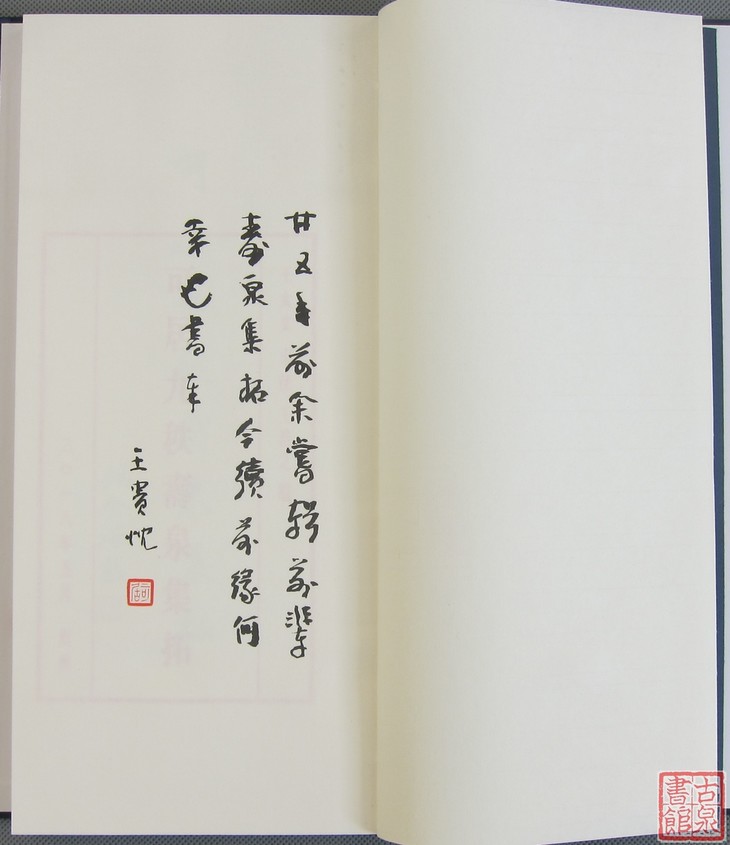 廿五年前余嘗輯前輩
壽泉集拓今續前緣何
幸也書
王贵忱
古泉書館